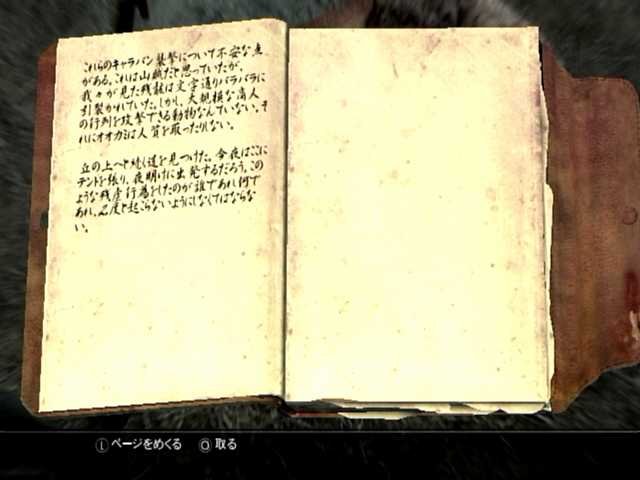 これらのキャラバン襲撃について不安な点
がある。これは山賊だと思っていたが、
我々が見た残骸は文字通りバラバラに
引裂かれていた。しかし、大規模な商人
の行列を攻撃できる動物なんていない。そ
れにオオカミは人質を取ったりしない。
丘の上へや続く道を見つけた。今夜はここに
テントを張り、夜明けに出発するだろう。この
ような残虐行為をしたのが誰であれ何で
あれ、二度と起こらないようにしなくてはならな
い。
Ⓛ ページをめくる Ⓞ 取る